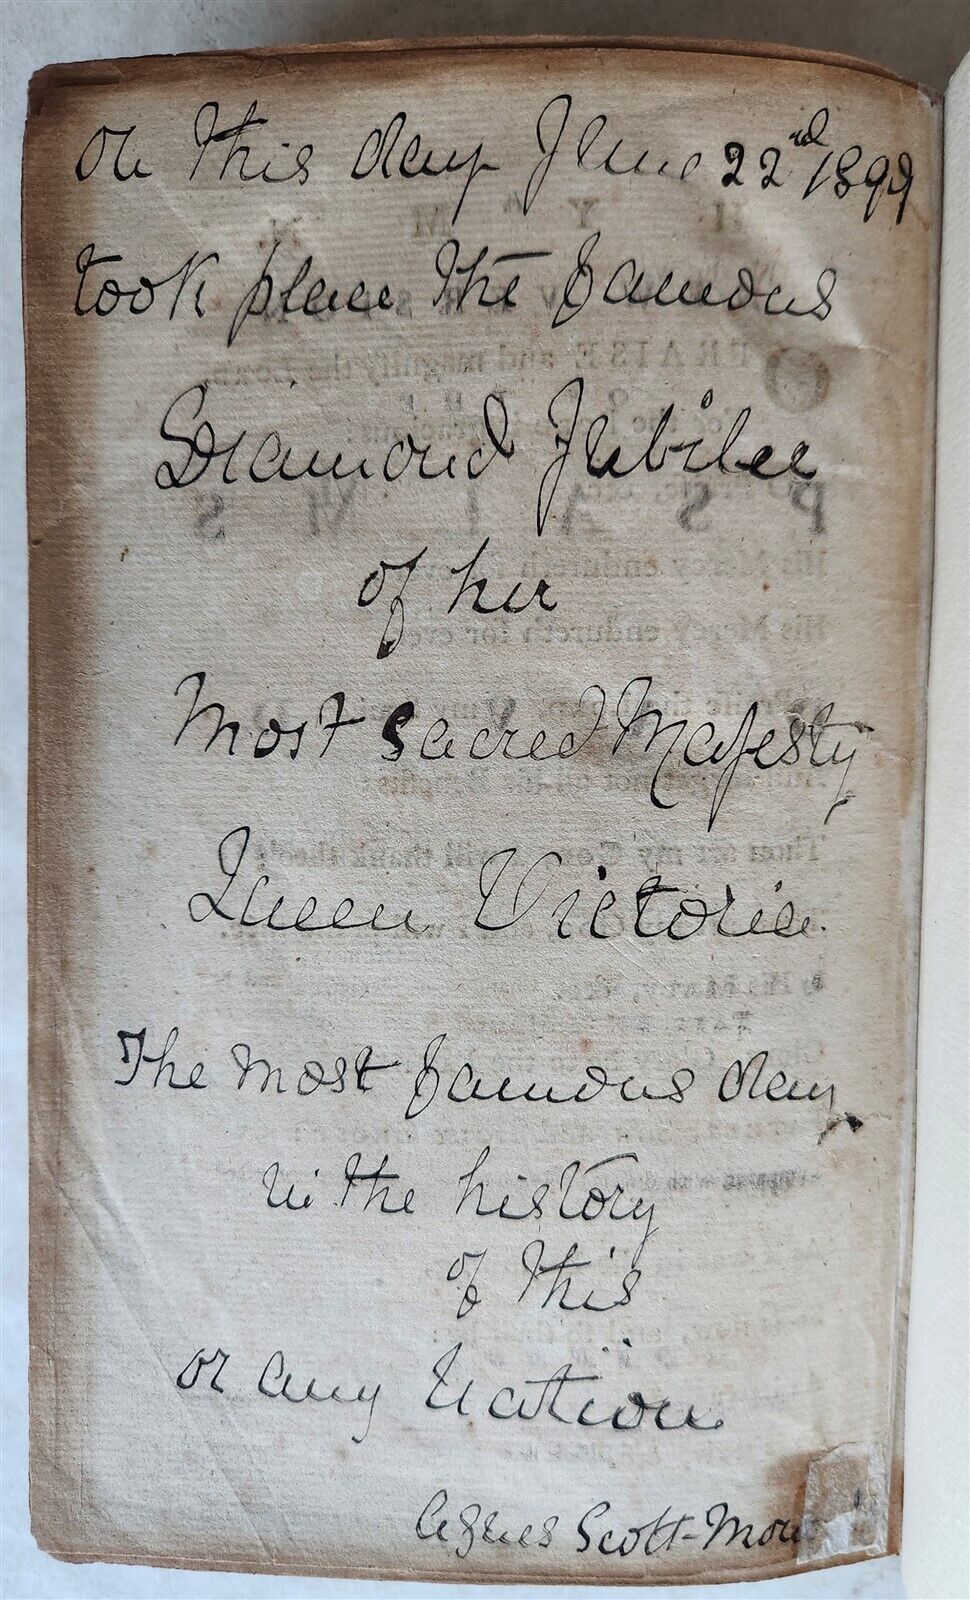 On this day June 22nd 1897
took place the famous
Diamond Jubilee
of her
Most sacred Majesty
Queen Victoria
The most famous day
in the history
of this
or any Nation
Agnes Scott-